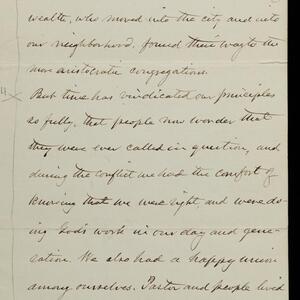 wealth, who moved into the city and into
our neighborhood, found their way to the
more aristocratic congregations.
But time has vindicated our principles
so fully, that people now wonder that
they were ever called in question, and
during the conflict we had the comfort of
knowing that we were right, and were do-
ing God's work in our day and gene-
ration. We also had a happy union
among ourselves. Pastor and people lived